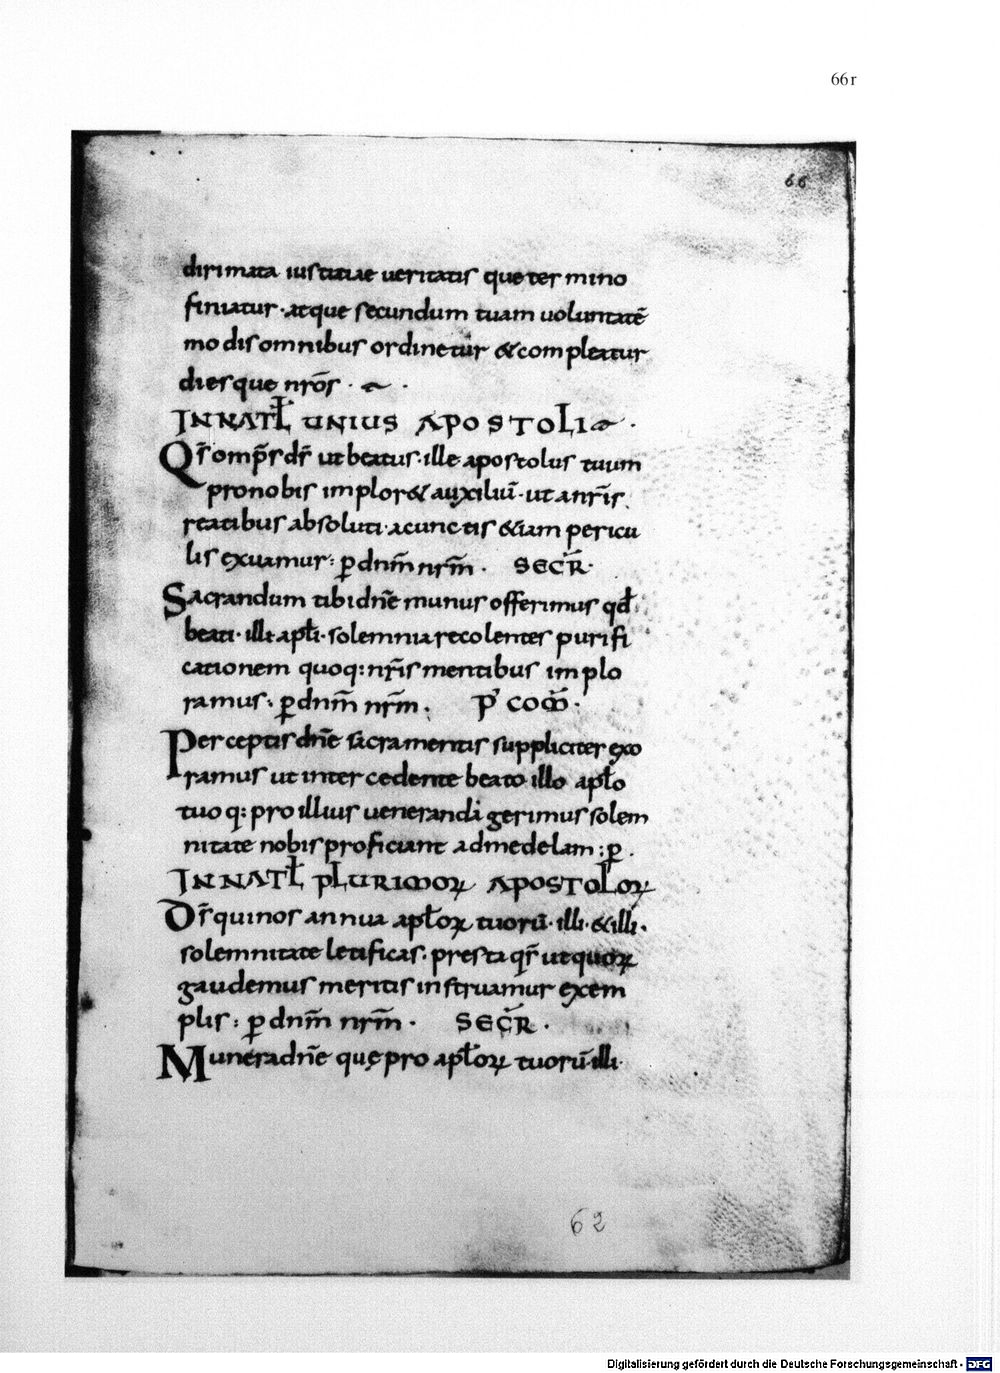 66r
66
dirimata iustitiae ueritatis que ter mino
finiatur · atque secundum tuam uoluntatē
modis omnibus ordinetur & compleatur
dies que nr̄os · ~ ·
IN NATL̄ UNIUS APOSTOLI ·
Qs̄ omp̄s ds̄ ut beatus · ille apostolus tuum
pro nobis implor& auxiliū · ut a nr̄is
reatibus absoluti · a cunctis &iam pericu
lis exuamur : p̱ dnm̄ nrm̄ · SECR̄ ·
Sacrandum tibi dn̄e munus offerimus qđ
beati · illi apłi · solemnia recolentes purifi
cationem quoq: nr̄is mentibus implo
ramus : p̱ dnm̄ nrm̄ · P' COM̄ ·
Perceptis dn̄e sacramentis suppliciter exo
ramus ut inter cedente beato illo apło
tuo q: pro illius ueneranda gerimus solem
nitate nobis proficiant ad medelam : p̱ .
IN NATL̄ PLURIMOꝜ APOSTOLOꝜ
Ds̄ qui nos annua apłoꝝ tuorū · illi · & illi ·
solemnitate letificas · presta qs̄ ut quoꝝ
gaudemus meritis instruamur exem
plis : p̱ dnm̄ nrm̄ · SECR̄ ·
Munera dn̄e quę pro apłoꝝ tuorū illi ·
62
Digitalisierung gefördert durch die Deutsche Forschungsgemeinschaft - DFG